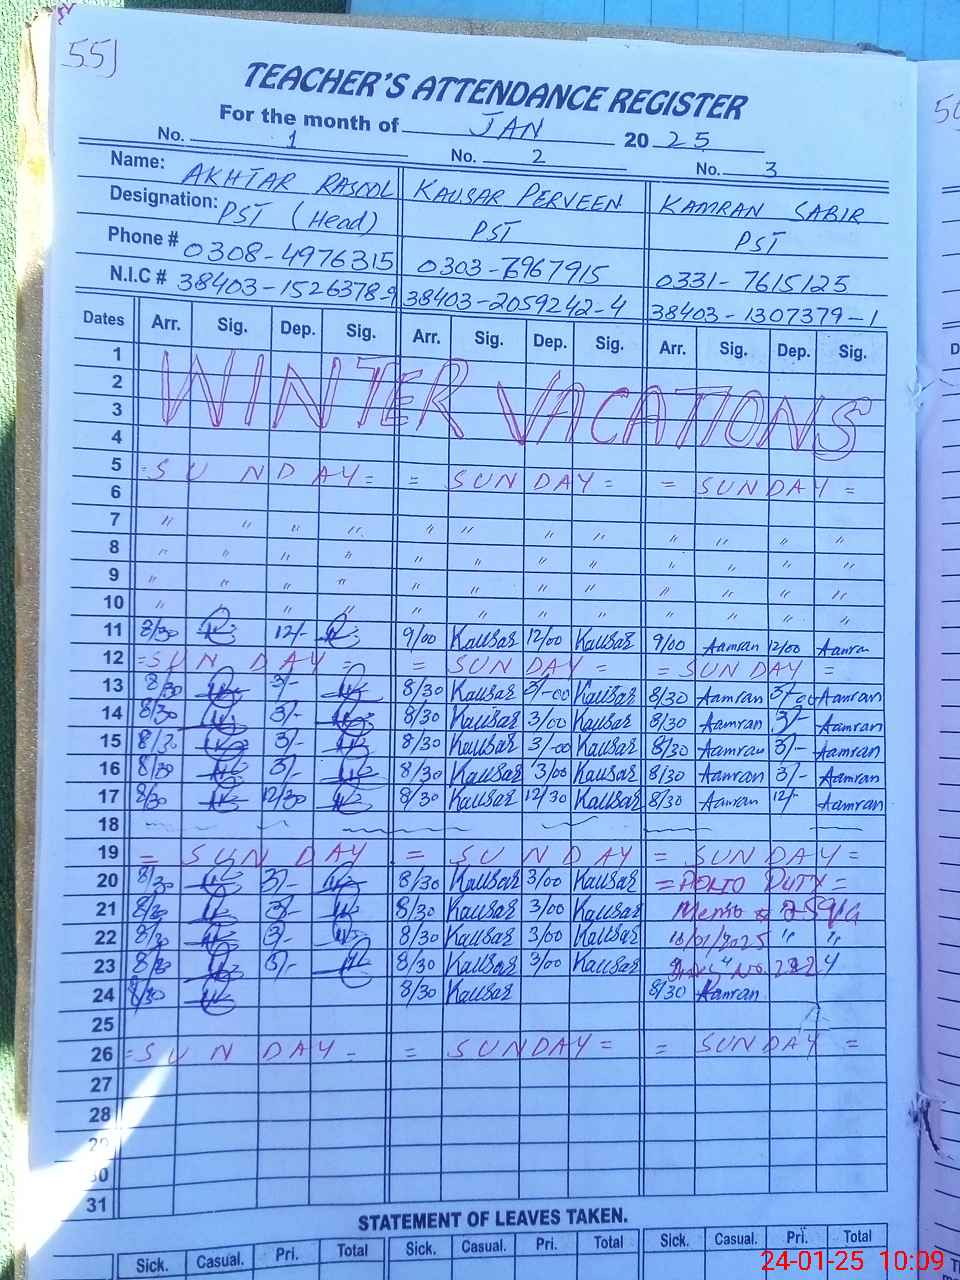 55
TEACHER'S ATTENDANCE REGISTER
For the month of JAN 2025
No. 1 No. 2 No. 3
Name: AKHTAR RASOOL KAUSAR PERVEEN KAMRAN SABIR
Designation: PST (Head) PST PST
Phone # 0308-4976315 0303-6967915 0331-7615125
N.I.C # 38403-1526378-9 38403-2059242-4 38403-1307379-1
Dates Arr. Sig. Dep. Sig. Arr. Sig. Dep. Sig. Arr. Sig. Dep. Sig.
1
2 WINTER VACATIONS
3
4
5 = SUNDAY = = SUNDAY = = SUNDAY =
6
7 " " " " " " " " " " " "
8 " " " " " " " " " " " "
9 " " " " " " " " " " " "
10 " " " " " " " " " " " "
11 8/30 12/- 9/00 Kausar 12/00 Kausar 9/00 Aamran 12/00 Aamran
12 = SUNDAY = = SUNDAY = = SUNDAY =
13 8/30 3/- 8/30 Kausar 3/-00 Kausar 8/30 Aamran 3/-00 Aamran
14 8/30 3/- 8/30 Kausar 3/00 Kausar 8/30 Aamran 3/- Aamran
15 8/30 3/- 8/30 Kausar 3/-00 Kausar 8/30 Aamran 3/- Aamran
16 8/30 3/- 8/30 Kausar 3/00 Kausar 8/30 Aamran 3/- Aamran
17 8/30 12/30 8/30 Kausar 12/30 Kausar 8/30 Aamran 12/- Aamran
18
19 = SUNDAY = SUNDAY = SUNDAY =
20 8/30 3/- 8/30 Kausar 3/00 Kausar = POLIO DUTY =
21 8/30 3/- 8/30 Kausar 3/00 Kausar Memo
22 8/30 3/- 8/30 Kausar 3/00 Kausar /01/2025 " "
23 8/30 3/- 8/30 Kausar 3/00 Kausar No.
24 8/30 8/30 Kausar 8/30 Aamran
25
26 = SUNDAY - = SUNDAY = = SUNDAY =
27
28
29
30
31
STATEMENT OF LEAVES TAKEN.
Sick. Casual. Pri. Total Sick. Casual. Pri. Total Sick. Casual. Pri. Total
24-01-25 10:09